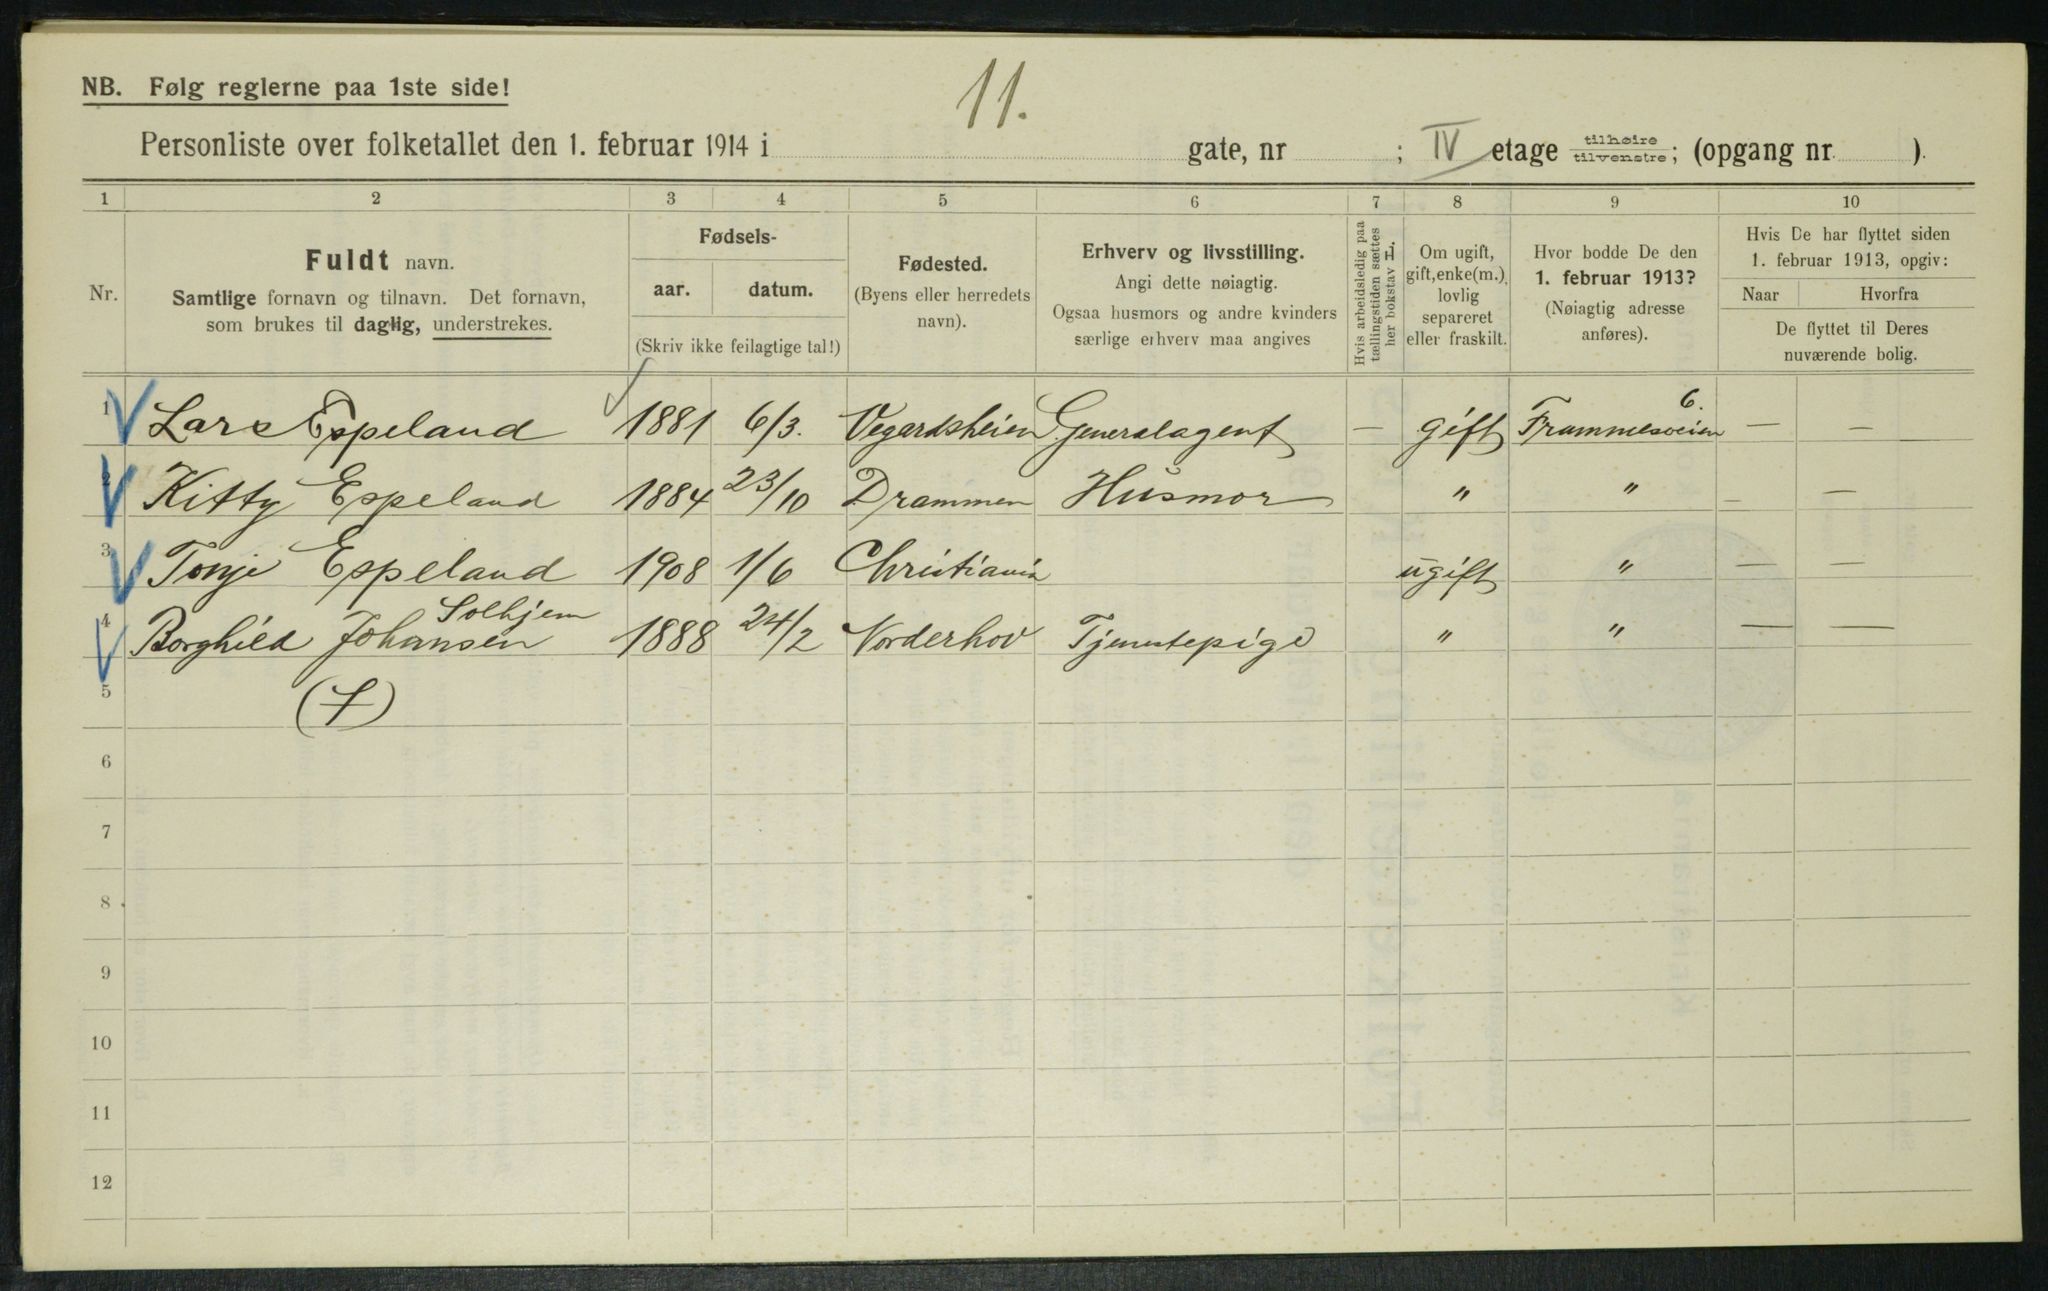 NB. Følg reglerne paa 1ste side!
11.
Personliste over folketallet den 1. februar 1914 i gate, nr ; IV etage tilhøire tilvenstre; (opgang nr. ).
1 2 3 4 5 6 7 8 9 10
Nr.
Fuldt navn.
Samtlige fornavn og tilnavn. Det fornavn,
som brukes til daglig, understrekes.
Fødsels-
aar. datum.
(Skriv ikke feilagtige tal!)
Fødested.
(Byens eller herredets
navn).
Erhverv og livsstilling.
Angi dette nøiagtig.
Ogsaa husmors og andre kvinders
særlige erhverv maa angives
Hvis arbeidsledig paa
tællingstiden sættes
her bokstav L.
Om ugift,
gift, enke(m.),
lovlig
separeret
eller fraskilt.
Hvor bodde De den
1. februar 1913?
(Nøiagtig adresse
anføres).
Hvis De har flyttet siden
1. februar 1913, opgiv:
Naar Hvorfra
De flyttet til Deres
nuværende bolig.
1 Lars Espeland 1881 6/3. Vegardsheien Generalagent — gift 6. — —
2 Kitty Espeland 1884 23/10 Drammen Husmor " " — —
3 Tonje Espeland 1908 1/6 Christiania ugift " — —
4 Borghild Johansen Solhjem 1888 24/2 Norderhov Tjenestepige " " — —
5
6
7
8
9
10
11
12